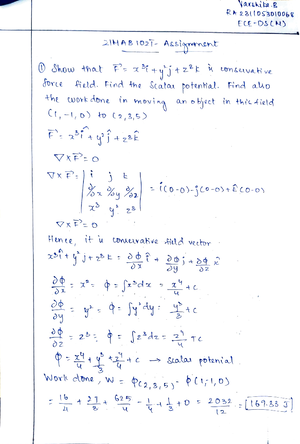 Varshitha.B
RA2311053010068
ECE-DS(M)
21MAB102T- Assignment
① Show that F = x³i + y²j + z³k is conservative
force field. Find the scalar potential. Find also
the work done in moving an object in this field
(1,-1,0) to (2,3,5)
F: x³i + y²j + z³k
∇×F = 0
∇×F = | i j k
∂/∂x ∂/∂y ∂/∂z
x³ y² z³ | = i(0-0) - j(0-0) + k(0-0)
∇×F = 0
Hence, it is conservative field vector
x³i + y²j + z³k = ∂Φ/∂x i + ∂Φ/∂y j + ∂Φ/∂z k
∂Φ/∂x = x³ = Φ = ∫x³dx = x⁴/4 + c
∂Φ/∂y = y² = Φ = ∫y²dy = y³/3 + c
∂Φ/∂z = z³ : Φ = ∫z³dz = z⁴/4 + c
Φ = x⁴/4 + y³/3 + z⁴/4 + c → scalar potential
Work done, W = Φ(2,3,5) - Φ(1,-1,0)
= 16/4 + 27/3 + 625/4 - 1/4 + 1/3 + 0 = 2032/12 = 169.33 J